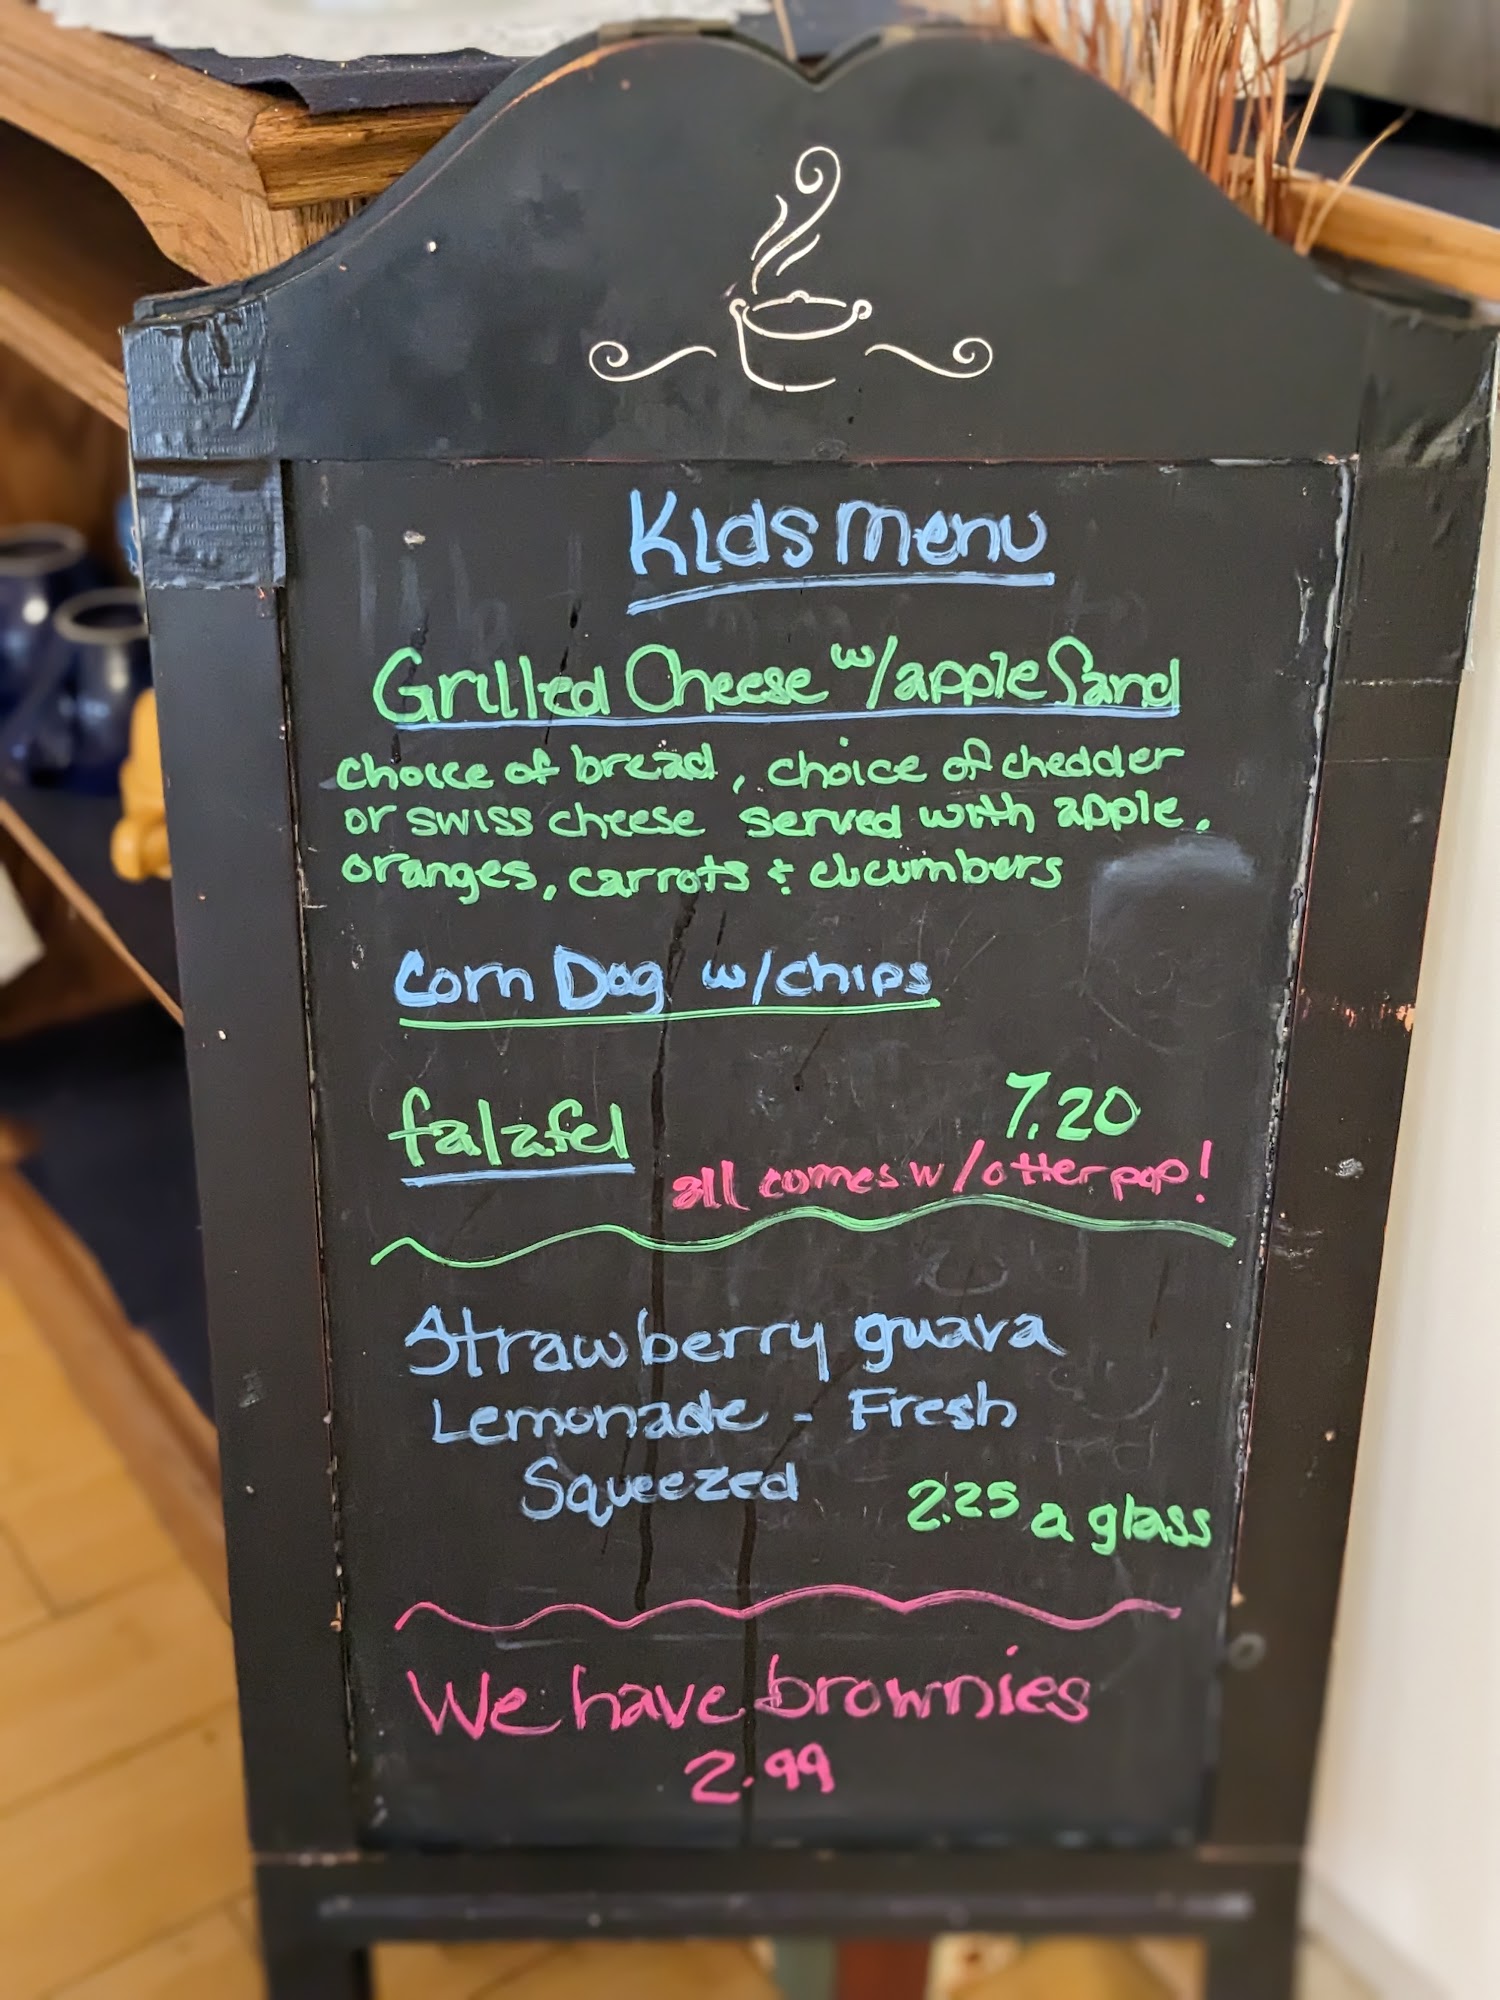 Kids menu
Grilled Cheese w/apple Sand
choice of bread, choice of chedder
or swiss cheese served with apple,
oranges, carrots & cucumbers
Corn Dog w/chips
falafel 7.20
all comes w/otter pop!
Strawberry guava
Lemonade - Fresh
Squeezed 2.25 a glass
We have brownies
2.99